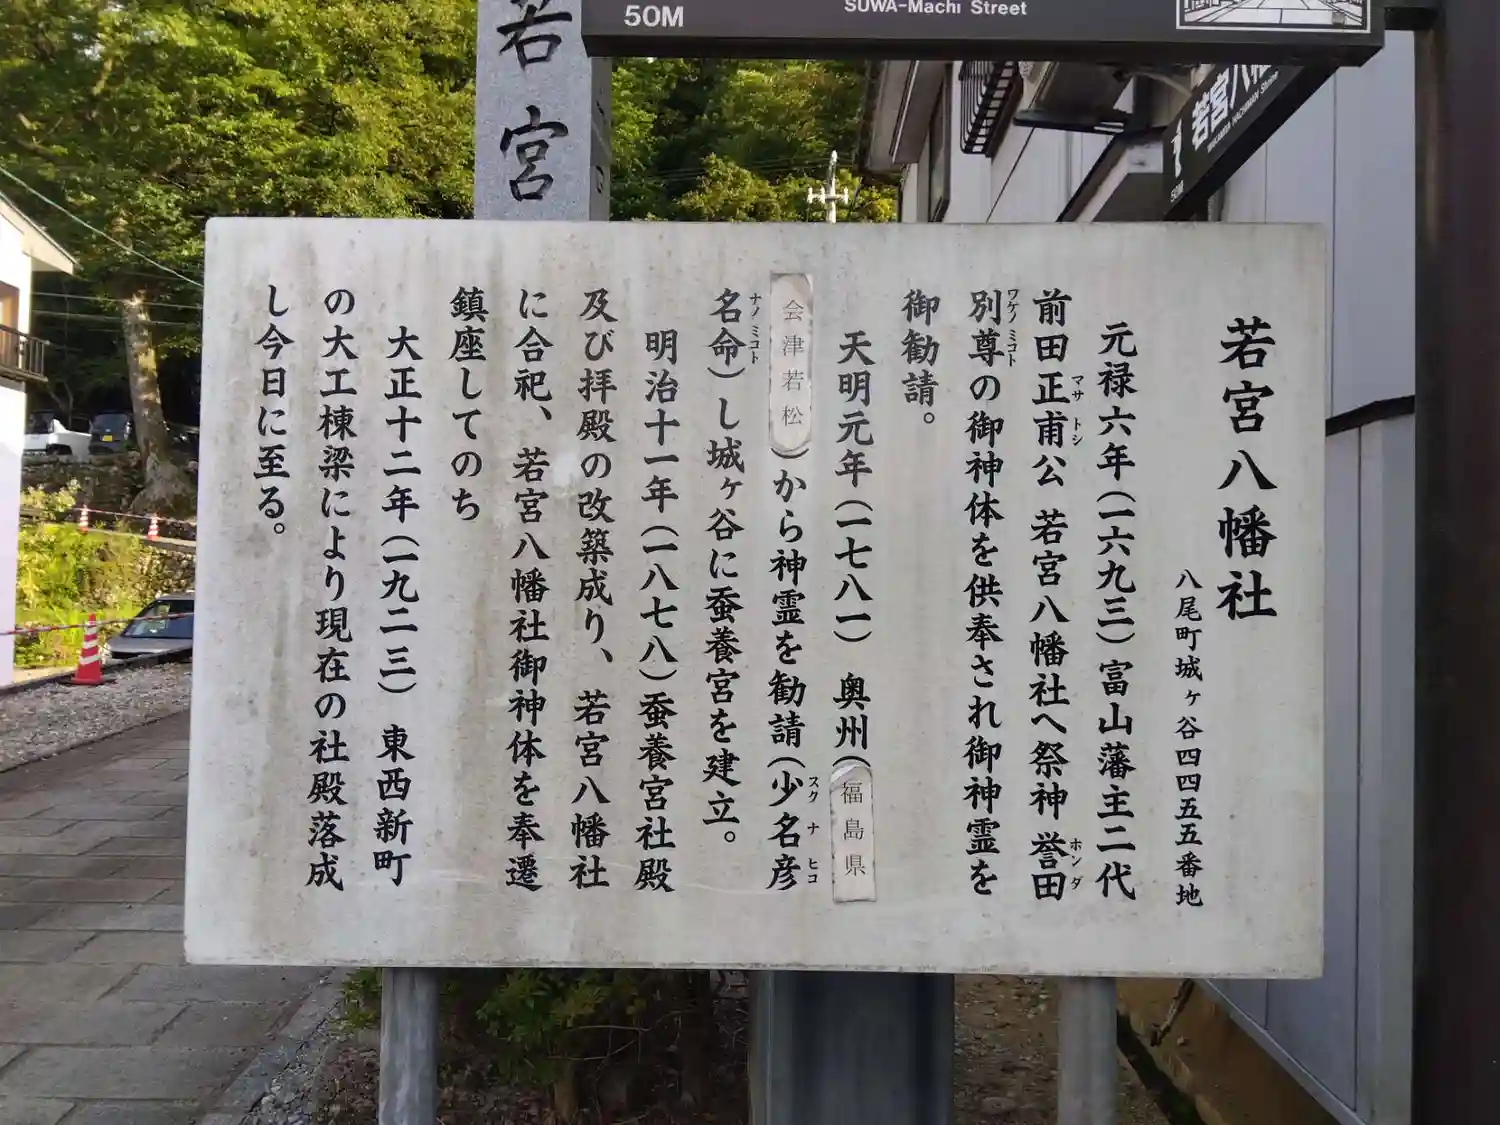 50M
SUWA-Machi Street
若宮
若宮八幡
WAKAMIYA HACHIMAN Shrine
50M
若宮八幡社
八尾町城ヶ谷四四五五番地
元禄六年(一六九三)富山藩主二代
前田正甫公 若宮八幡社へ祭神 誉田
マサ トシ
ホンダ
別尊の御神体を供奉され御神霊を
ワケノミコト
御勧請。
天明元年(一七八一) 奥州(福島県
会津若松)から神霊を勧請(少名彦
スク ナ ヒコ
名命)し城ヶ谷に蚕養宮を建立。
ナノミコト
明治十一年(一八七八)蚕養宮社殿
及び拝殿の改築成り、若宮八幡社
に合祀、若宮八幡社御神体を奉遷
鎮座してのち
大正十二年(一九二三) 東西新町
の大工棟梁により現在の社殿落成
し今日に至る。